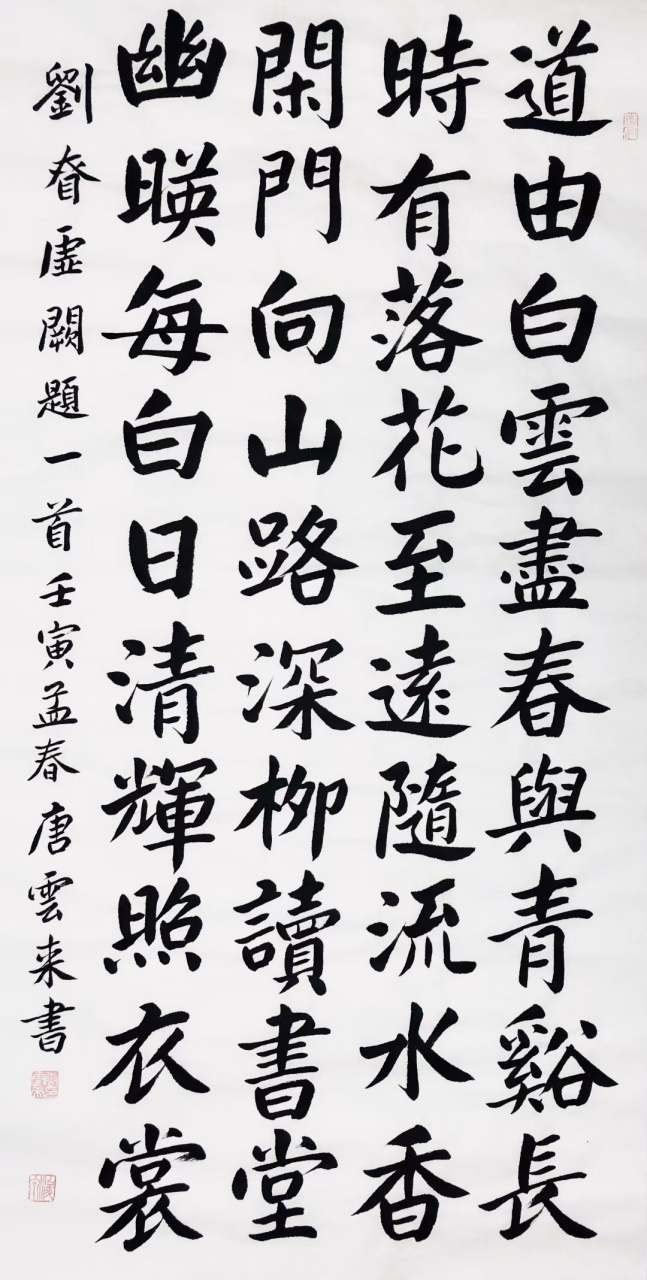 道由白雲盡春與青谿長
時有落花至遠隨流水香
閑門向山路深柳讀書堂
幽暎每白日清輝照衣裳
劉眘虛闕題一首壬寅孟春唐雲来書